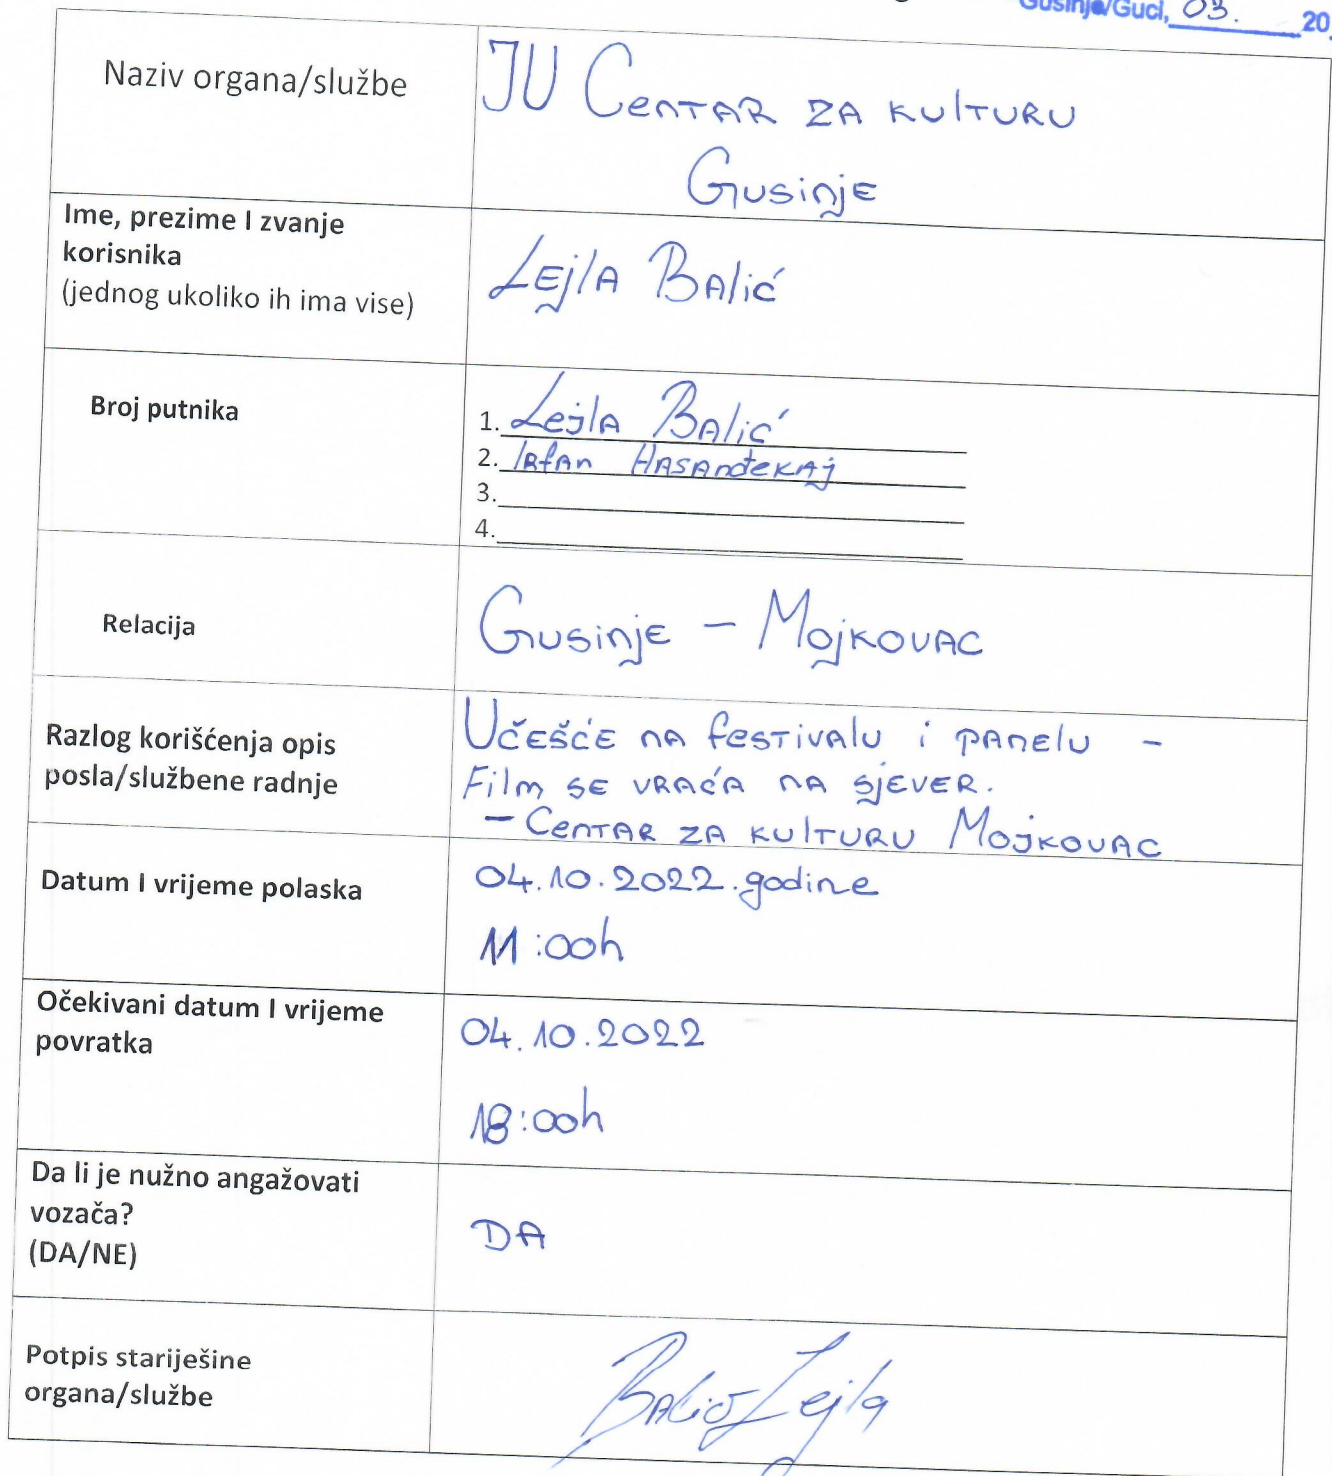 Gusinje/Guci, 03. 20
Naziv organa/službe
JU Centar za kulturu
Gusinje
Ime, prezime I zvanje
korisnika
(jednog ukoliko ih ima vise)
Lejla Balić
Broj putnika
1. Lejla Balić
2. Irfan Hasanđekaj
3.
4.
Relacija
Gusinje – Mojkovac
Razlog korišćenja opis
posla/službene radnje
Učešće na festivalu i panelu –
Film se vraća na sjever.
– Centar za kulturu Mojkovac
Datum I vrijeme polaska
04.10.2022.godine
11:00h
Očekivani datum I vrijeme
povratka
04.10.2022
18:00h
Da li je nužno angažovati
vozača?
(DA/NE)
DA
Potpis starješine
organa/službe
Balić Lejla